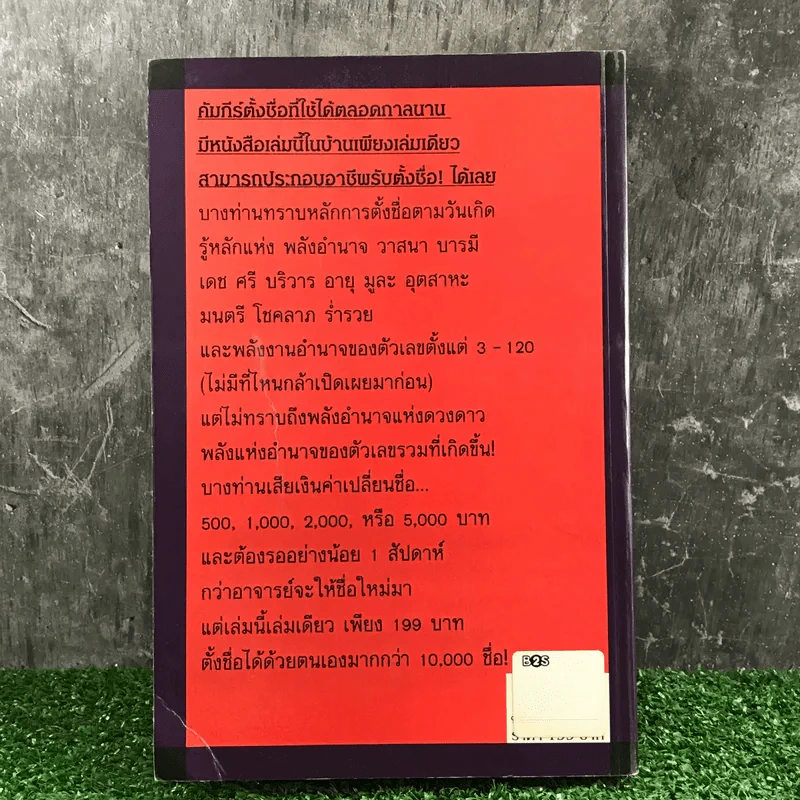 คัมภีร์ตั้งชื่อที่ใช้ได้ตลอดกาลนาน
มีหนังสือเล่มนี้ในบ้านเพียงเล่มเดียว
สามารถประกอบอาชีพรับตั้งชื่อ! ได้เลย
บางท่านทราบหลักการตั้งชื่อตามวันเกิด
รู้หลักแห่ง พลังอำนาจ วาสนา บารมี
เดช ศรี บริวาร อายุ มูละ อุตสาหะ
มนตรี โชคลาภ ร่ำรวย
และพลังงานอำนาจของตัวเลขตั้งแต่ 3 - 120
(ไม่มีที่ไหนกล้าเปิดเผยมาก่อน)
แต่ไม่ทราบถึงพลังอำนาจแห่งดวงดาว
พลังแห่งอำนาจของตัวเลขรวมที่เกิดขึ้น!
บางท่านเสียเงินค่าเปลี่ยนชื่อ...
500, 1,000, 2,000, หรือ 5,000 บาท
และต้องรออย่างน้อย 1 สัปดาห์
กว่าอาจารย์จะให้ชื่อใหม่มา
แต่เล่มนี้เล่มเดียว เพียง 199 บาท
ตั้งชื่อได้ด้วยตนเองมากกว่า 10,000 ชื่อ!
B2S